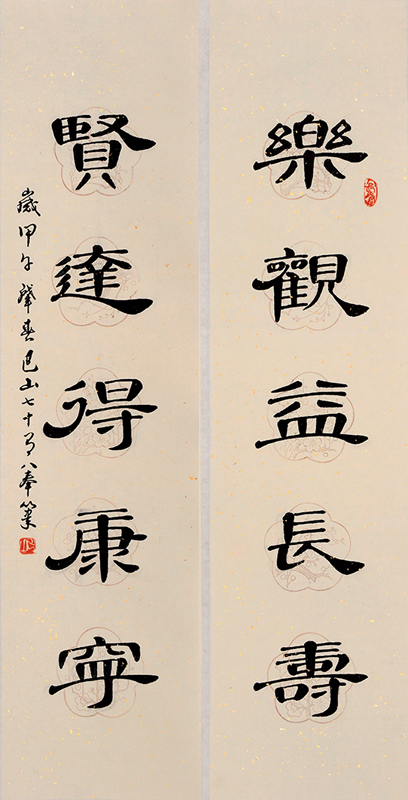 樂觀益長壽
賢達得康寧
歲甲午肇春巴山七十有八奉篆